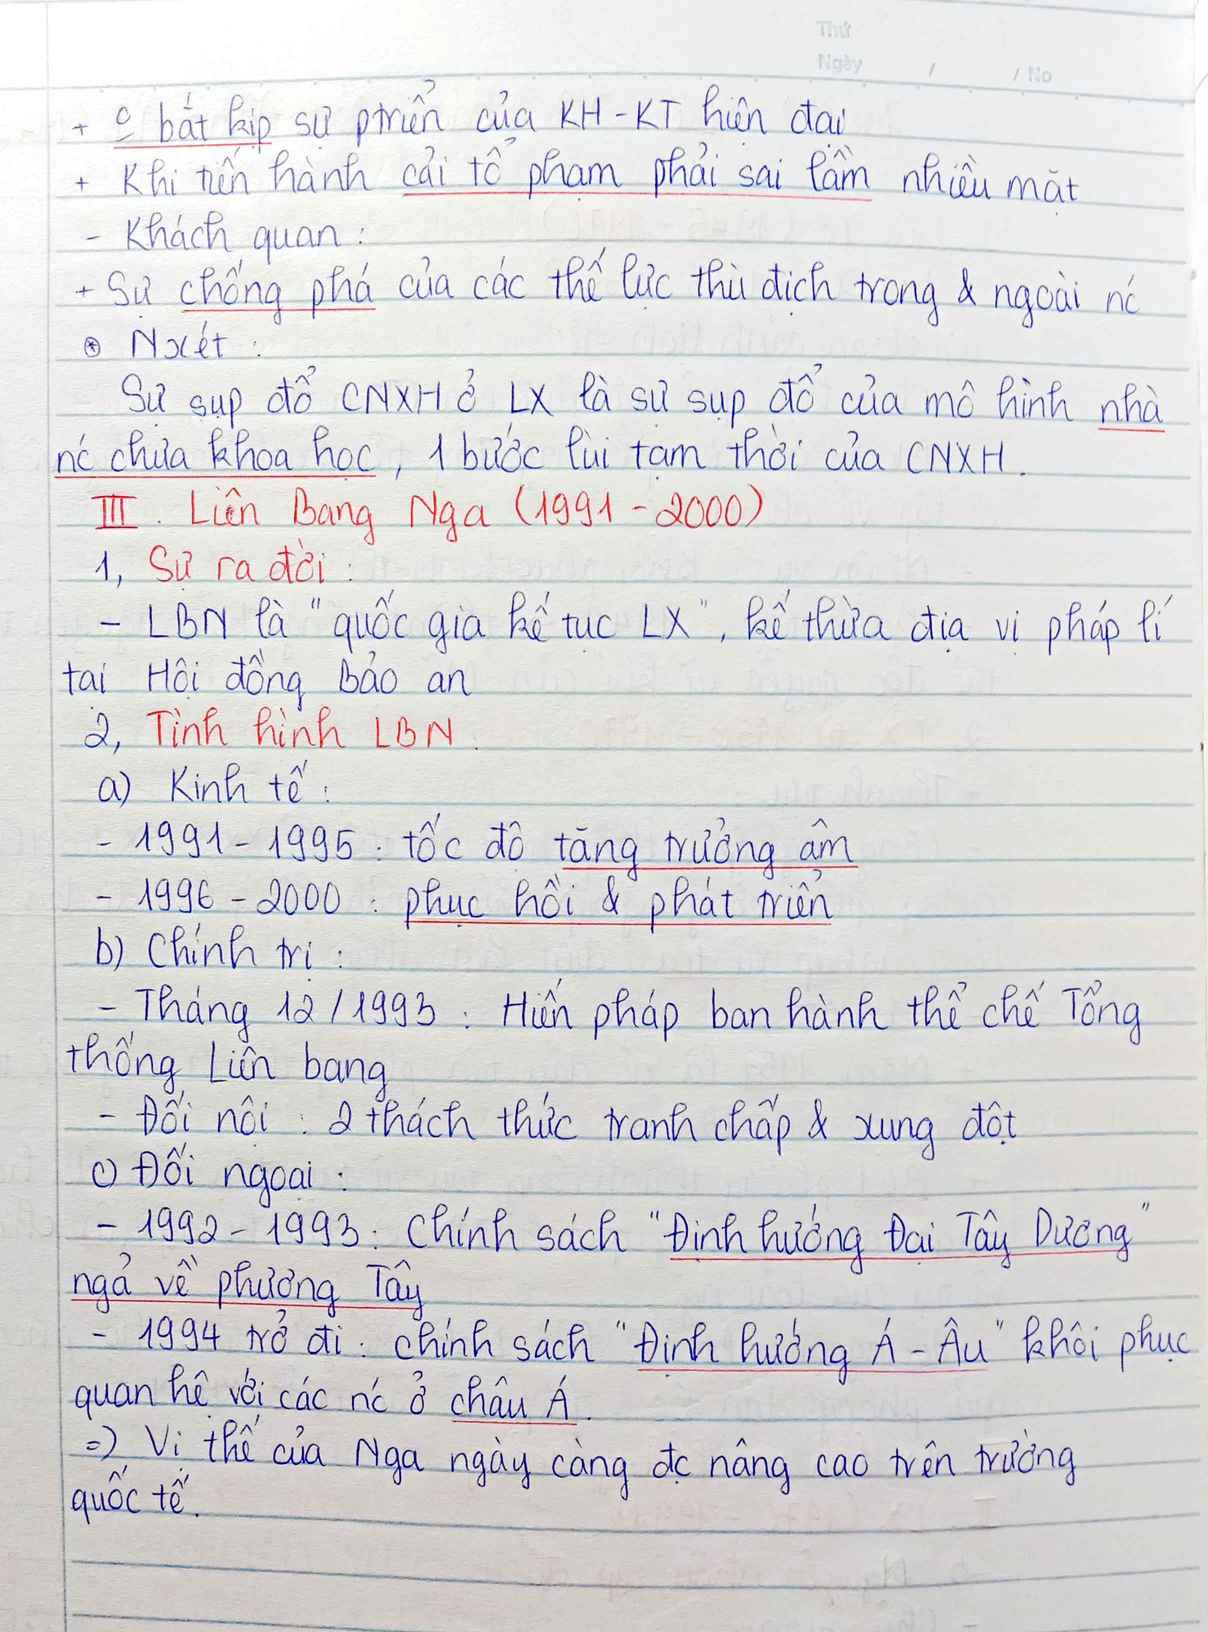 Thứ
Ngày / / No
+ c̲ bắt kịp sự ptriển của KH-KT hiện đại
+ Khi tiến hành cải tổ phạm phải sai lầm nhiều mặt
- Khách quan:
+ Sự chống phá của các thế lực thù địch trong & ngoài nc
⊛ Nxét:
Sự sụp đổ CNXH ở LX là sự sụp đổ của mô hình nhà
nc chưa khoa học, 1 bước lùi tạm thời của CNXH.
III. Liên Bang Nga (1991-2000)
1, Sự ra đời:
- LBN là "quốc gia kế tục LX", kế thừa địa vị pháp lí
tại Hội đồng Bảo an
2, Tình hình LBN.
a) Kinh tế:
- 1991-1995: tốc độ tăng trưởng âm
- 1996-2000: phục hồi & phát triển
b) Chính trị:
- Tháng 12/1993: Hiến pháp ban hành thể chế Tổng
thống Liên bang
- Đối nội: 2 thách thức tranh chấp & xung đột
c) Đối ngoại:
- 1992-1993: Chính sách "Định hướng Đại Tây Dương"
ngả về phương Tây
- 1994 trở đi: chính sách "Định hướng Á-Âu" khôi phục
quan hệ với các nc ở châu Á.
=) Vị thế của Nga ngày càng đc nâng cao trên trường
quốc tế.